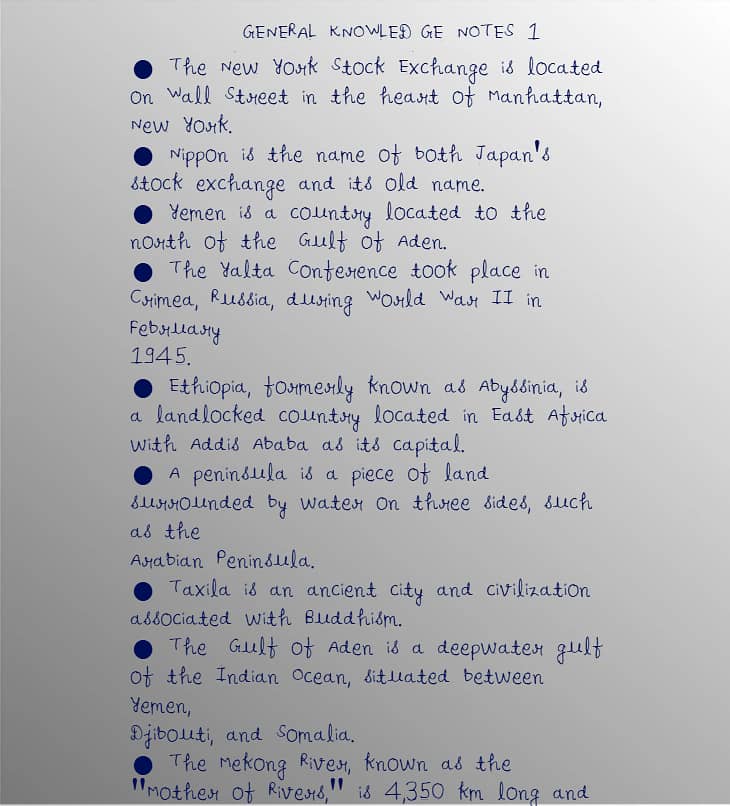 GENERAL KNOWLED GE NOTES 1
● The New York Stock Exchange is located
on Wall Street in the heart of Manhattan,
New York.
● Nippon is the name of both Japan's
stock exchange and its old name.
● Yemen is a country located to the
north of the Gulf of Aden.
● The Yalta Conference took place in
Crimea, Russia, during World War II in
February
1945.
● Ethiopia, formerly known as Abyssinia, is
a landlocked country located in East Africa
with Addis Ababa as its capital.
● A peninsula is a piece of land
surrounded by water on three sides, such
as the
Arabian Peninsula.
● Taxila is an ancient city and civilization
associated with Buddhism.
● The Gulf of Aden is a deepwater gulf
of the Indian Ocean, situated between
Yemen,
Djibouti, and Somalia.
● The Mekong River, known as the
"Mother of Rivers," is 4,350 km long and